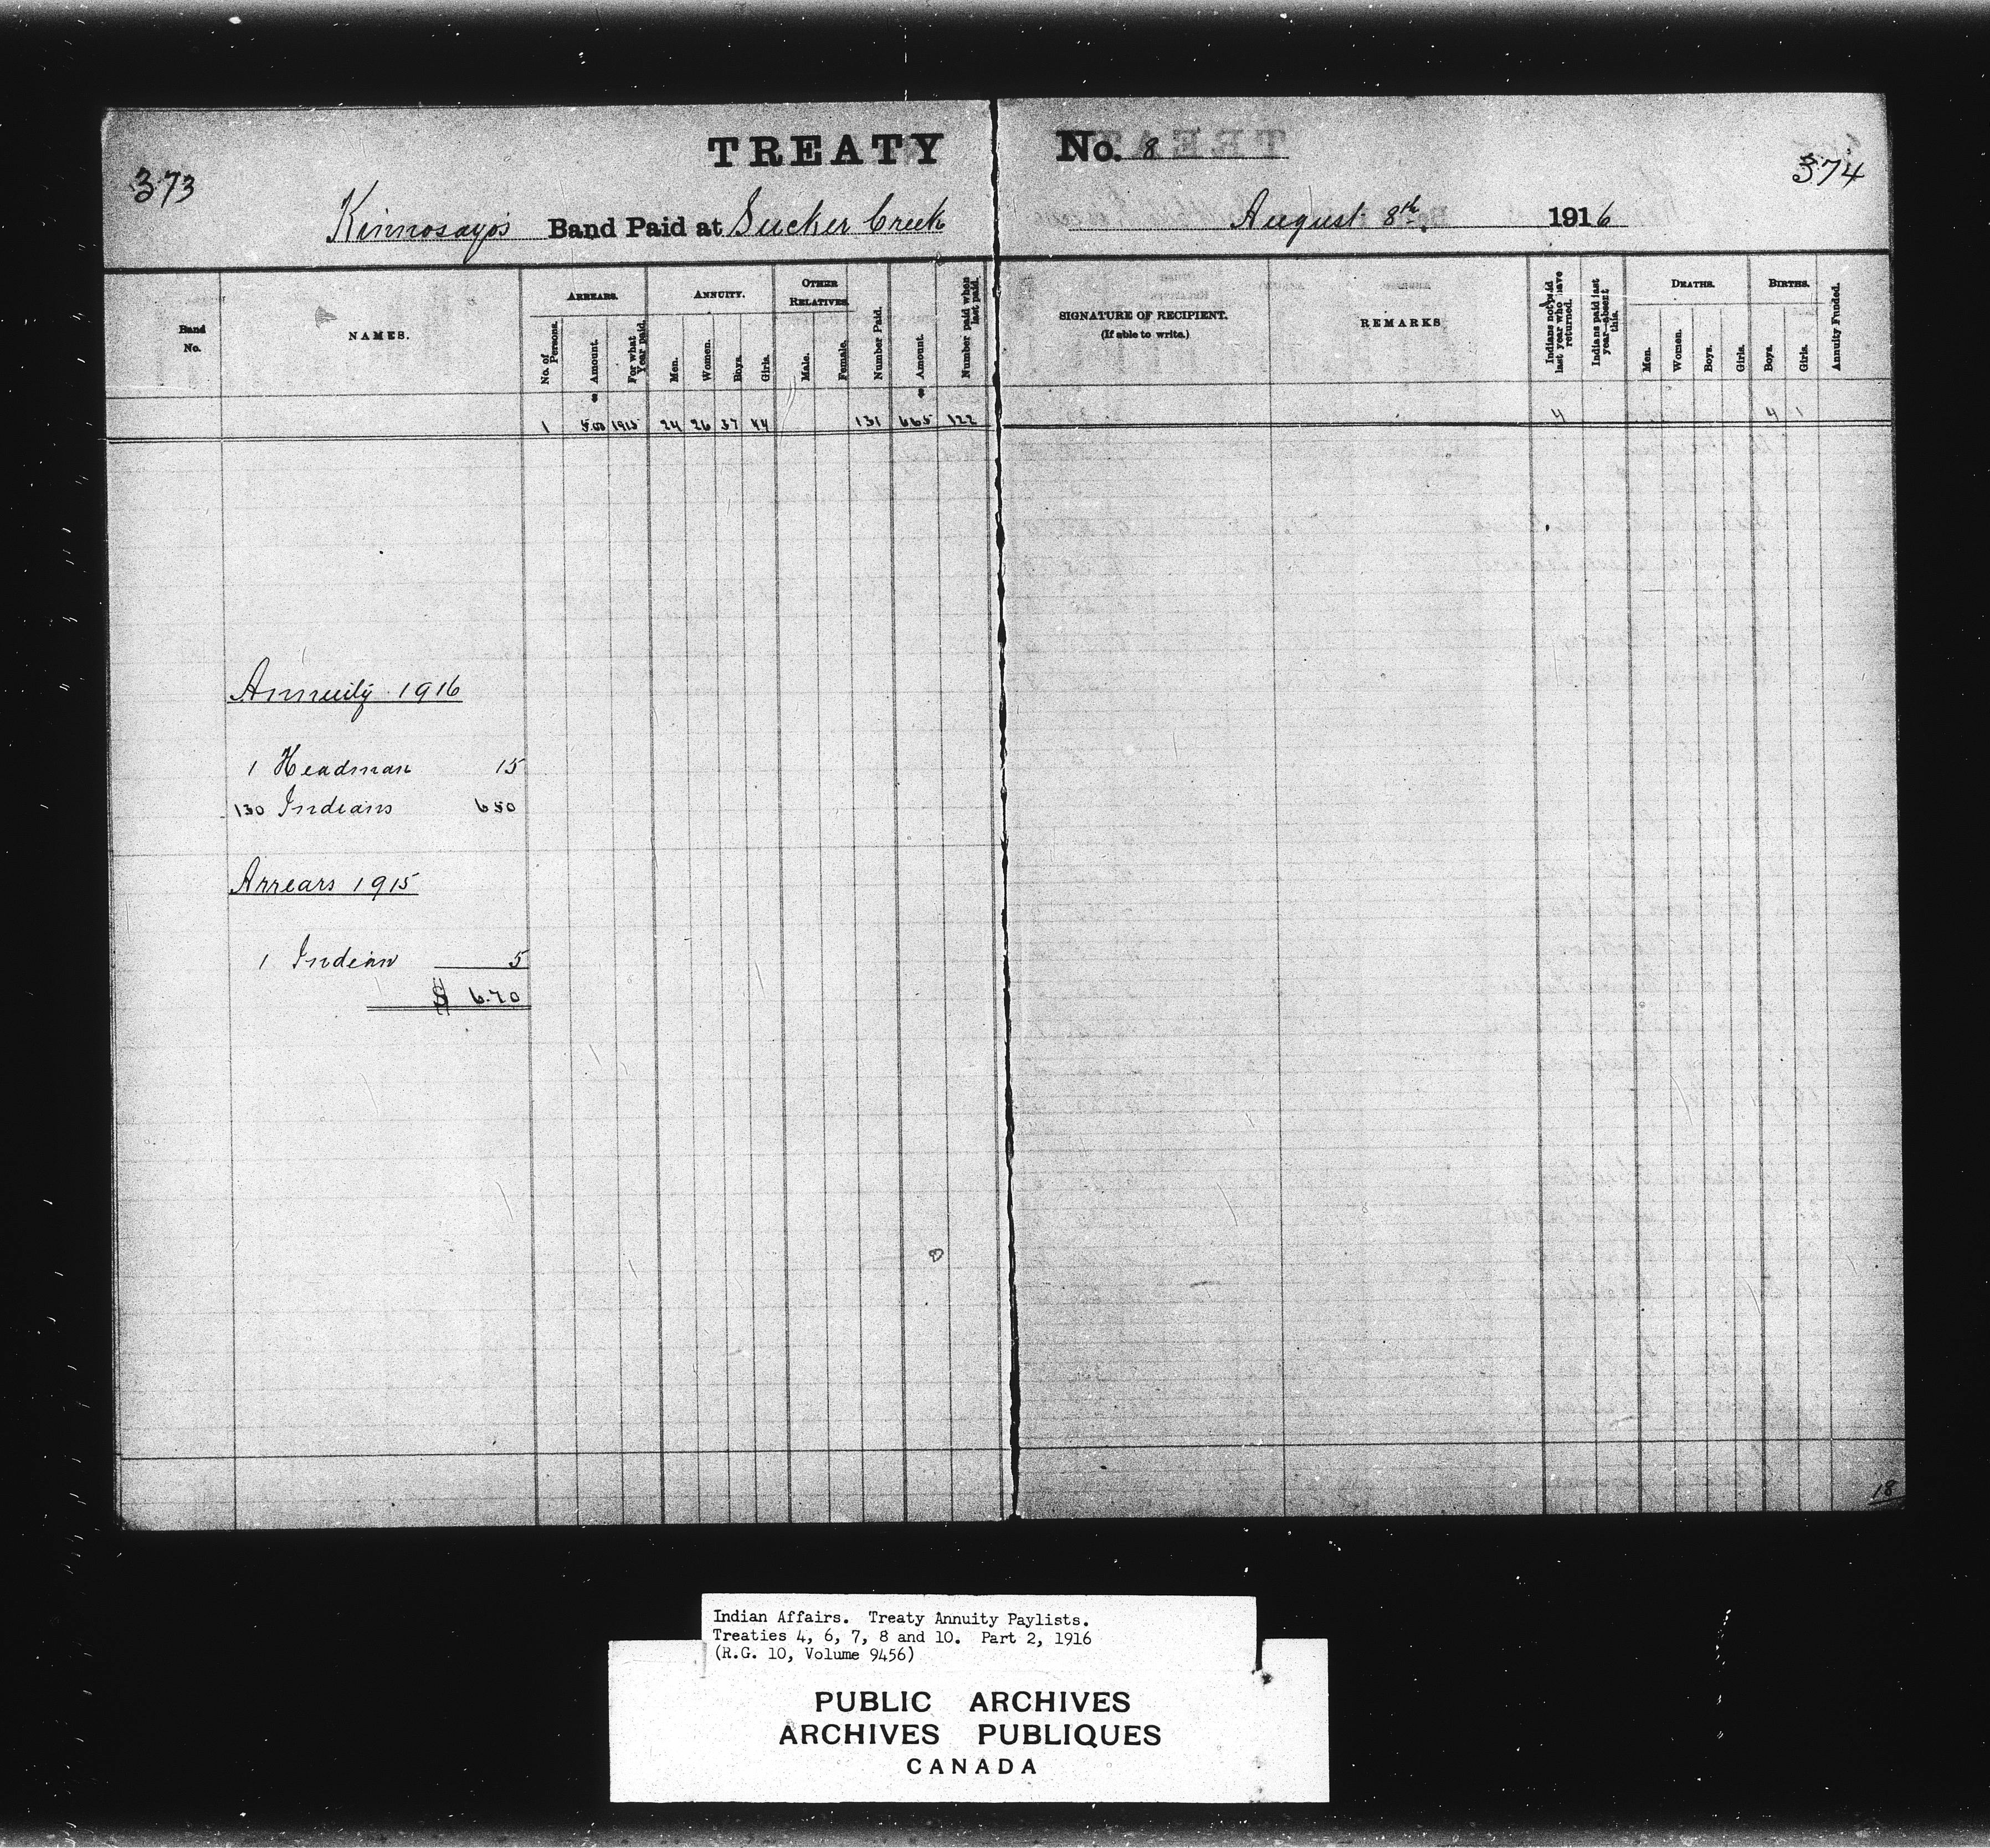 TREATY No. 8
373
374
Kinnosayo's Band Paid at Sucker Creek August 8th, 1916
Band No.
NAMES.
ARREARS.
No. of Persons.
Amount.
For what Year paid.
ANNUITY.
Men.
Women.
Boys.
Girls.
OTHER RELATIVES.
Male.
Female.
Number Paid.
Amount.
Number paid when last paid.
SIGNATURE OF RECIPIENT.
(If able to write.)
REMARKS
Indians not paid last year who have returned.
Indians paid last year—absent this.
DEATHS.
Men.
Women.
Boys.
Girls.
BIRTHS.
Boys.
Girls.
Annuity Funded.
$ $
1 5.00 1915 24 26 37 44 131 665 122 4 4 1
Annuity 1916
1 Headman 15
130 Indians 650
Arrears 1915
1 Indian 5
$ 670
18
Indian Affairs. Treaty Annuity Paylists.
Treaties 4, 6, 7, 8 and 10. Part 2, 1916
(R.G. 10, Volume 9456)
PUBLIC ARCHIVES
ARCHIVES PUBLIQUES
CANADA